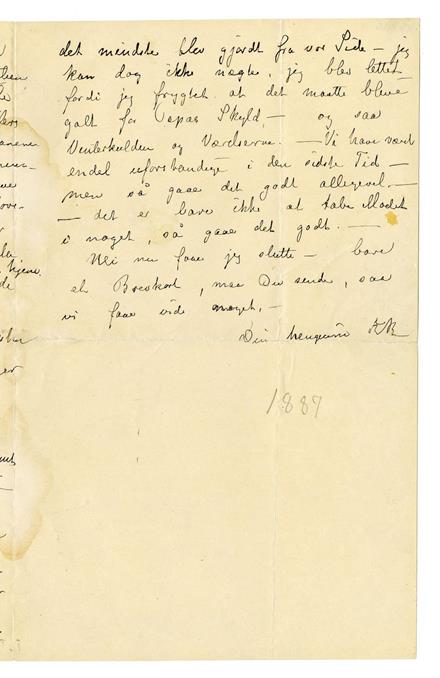 det mindste blev gjordt fra vor Side – jeg
kan dog ikke nægte, jeg blev lettet
fordi jeg frygtet at det maatte bleve
galt for Papas Skyld, – og saa
Vinterkulden og Værelserne. – Vi have været
endel uforstandige i den sidste Tid –
men så gaae det godt allligevel. –
– det er bare ikke at tabe Modet
i noget, så gaae det godt. –
Nei nu faae jeg slutte – bare
et Brevkort, maa Du sende, saa
vi faae vide noget, –
Din hengivne
1889